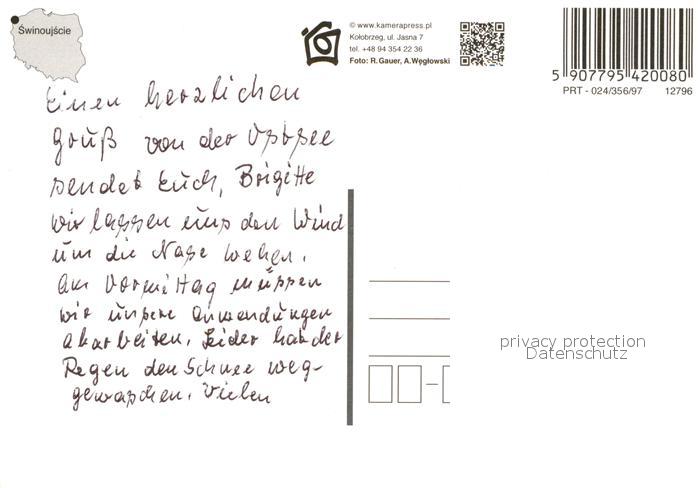 Świnoujście
© www.kamerapress.pl
Kołobrzeg, ul. Jasna 7
tel. +48 94 354 22 36
Foto: R. Gauer, A. Węgłowski
5 907795 420080
PRT - 024/356/97 12796
Einen herzlichen
Gruß von der Ostsee
sendet Euch, Brigitte
wir lassen uns den Wind
um die Nase wehen.
Am Vormittag müssen
wir unsere Anwendungen
abarbeiten. Leider hat der
Regen den Schnee weg-
gewaschen. Vielen
privacy protection
Datenschutz